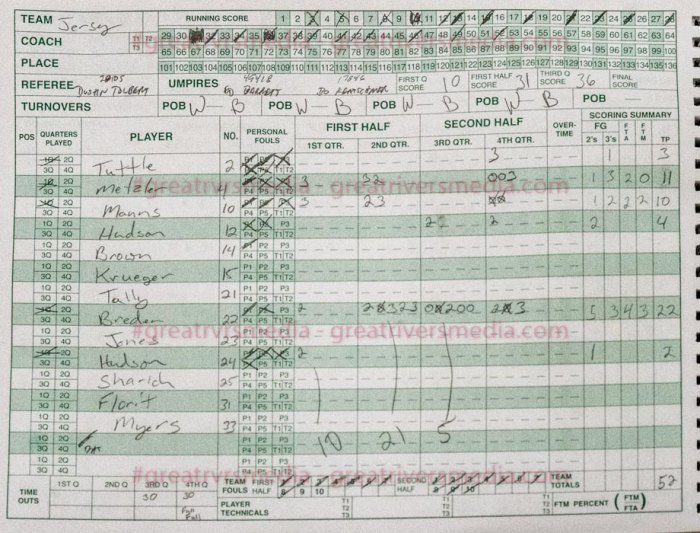 TEAM Jersey RUNNING SCORE 1 2 3 4 5 6 7 8 9 10 11 12 13 14 15 16 17 18 19 20 21 22 23 24 25 26 27 28
COACH T1 T2 T3 29 30 31 32 33 34 35 36 37 38 39 40 41 42 43 44 45 46 47 48 49 50 51 52 53 54 55 56 57 58 59 60 61 62 63 64
65 66 67 68 69 70 71 72 73 74 75 76 77 78 79 80 81 82 83 84 85 86 87 88 89 90 91 92 93 94 95 96 97 98 99 100
PLACE 101 102 103 104 105 106 107 108 109 110 111 112 113 114 115 116 117 118 119 120 121 122 123 124 125 126 127 128 129 130 131 132 133 134 135 136
REFEREE UMPIRES FIRST Q SCORE 10 FIRST HALF SCORE 31 THIRD Q SCORE 36 FINAL SCORE
TURNOVERS POB W - B POB W - B POB W - B POB W - B POB
POS QUARTERS PLAYED PLAYER NO. PERSONAL FOULS FIRST HALF 1ST QTR. 2ND QTR. SECOND HALF 3RD QTR. 4TH QTR. OVER-TIME SCORING SUMMARY FG 2's 3's FTA FTM TP
1Q 2Q 3Q 4Q Tuttle 2 P1 P2 P3 P4 P5 T1 T2 3 1 3
1Q 2Q 3Q 4Q Metzler P1 P2 P3 P4 P5 T1 T2 3 32 003 1 3 2 0 11
1Q 2Q 3Q 4Q Manns 10 P1 P2 P3 P4 P5 T1 T2 3 23 1 2 2 2 10
1Q 2Q 3Q 4Q Hudson 12 P1 P2 P3 P4 P5 T1 T2 2 2 4
1Q 2Q 3Q 4Q Brown 14 P1 P2 P3 P4 P5 T1 T2
1Q 2Q 3Q 4Q Krueger 15 P1 P2 P3 P4 P5 T1 T2
1Q 2Q 3Q 4Q Tally 21 P1 P2 P3 P4 P5 T1 T2
1Q 2Q 3Q 4Q Breden 22 P1 P2 P3 P4 P5 T1 T2 2 5 3 4 3 22
1Q 2Q 3Q 4Q Jones 23 P1 P2 P3 P4 P5 T1 T2
1Q 2Q 3Q 4Q Hudson 24 P1 P2 P3 P4 P5 T1 T2 2 1 2
1Q 2Q 3Q 4Q Sharich 25 P1 P2 P3 P4 P5 T1 T2
1Q 2Q 3Q 4Q Florit 31 P1 P2 P3 P4 P5 T1 T2
1Q 2Q 3Q 4Q Myers 33 P1 P2 P3 P4 P5 T1 T2
1Q 2Q 3Q 4Q P1 P2 P3 P4 P5 T1 T2 10 21 5
1Q 2Q 3Q 4Q P1 P2 P3 P4 P5 T1 T2
TIME OUTS 1ST Q 2ND Q 3RD Q 4TH Q TEAM FOULS FIRST HALF 1 2 3 4 5 6 7 8 9 10 SECOND HALF 1 2 3 4 5 6 7 8 9 10 TEAM TOTALS 52
30 30 Full Full PLAYER TECHNICALS T1 T2 T3 T1 T2 T3 T1 T2 T3 FTM PERCENT (FTM FTA)
#greatrvrsmedia - greatriversmedia.com
#greatriversmedia - greatriversmedia.com
#greatrvrsmedia - greatriversmedia.com
#greatrvrsmedia - greatriversmedia.com